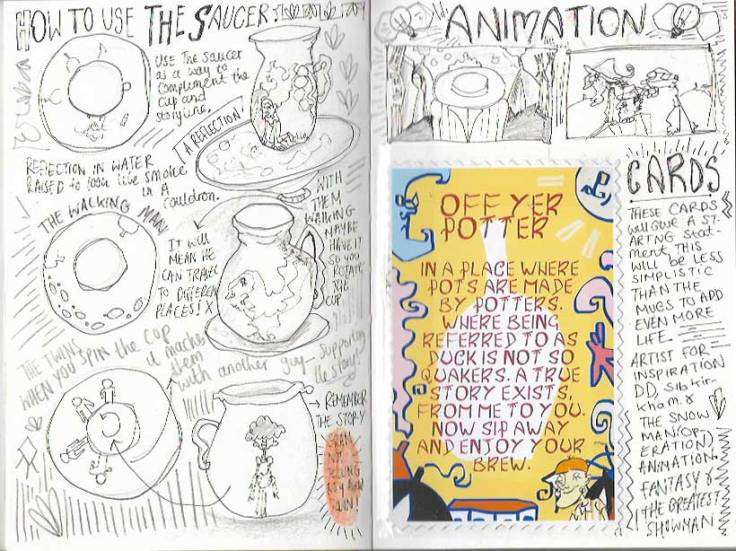 HOW TO USE THE SAUCER:
USE THE SAUCER
as a way to
complement the
cup and
storyline.
A REFLECTION!
REFLECTION IN WATER
RAISED to look like smoke
in a
Cauldron.
THE WALKING MAN
IT will
MEAN HE
CAN TRAVEL
TO DIFFEREN
PLACES! X
WITH
THEM
WALKING
MAYBE
HAVE IT
SO YOU
ROTATE
THE
CUP
THE TWINS
WHEN YOU SPIN the CUP
it machs
them
with another guy- supporting
the story!
REMEMBER
THE STORY
ANIMATION
OFF YER
POTTER
IN A PLACE WHERE
POTS ARE MADE
BY POTTERS.
WHERE BEING
REFERRED TO AS
DUCK IS NOT SO
QUAKERS. A TRUE
STORY EXISTS,
FROM ME TO YOU.
NOW SIP AWAY
AND ENJOY YOUR
BREW.
CARDS
THESE CARDS
will GIVE A ST-
ARTNG Stat-
ment. THIS
will be LESS
SIMPLISTIC
THAN THE
MUGS TO ADD
EVEN MORE
LIFE.
ARTIST FOR
INSPIRATION
DD, Sibkir-
kham. &
THE SNOW
MAN(OP-
ERATION)
ANIMATION.
FANTASY &
THE GREATEST
SHOWMAN